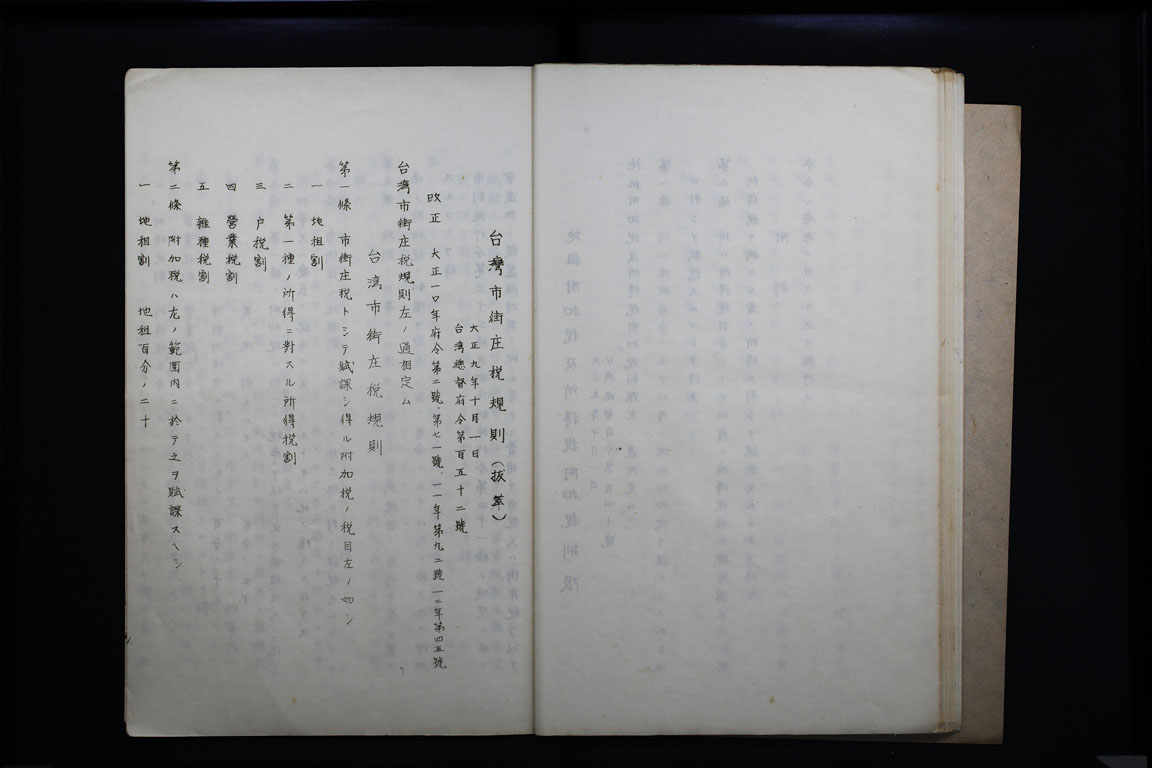 台灣市街庄税規則（抜萃）
大正九年十月一日
台湾總督府令第百五十二號
改正　大正一〇年府令第二號、第七一號、一一年第九二號一二年第四五號
台湾市街庄税規則左ノ通相定ム
台湾市街庄税規則
第一條　市街庄税トシテ賦課シ得ル附加税ノ税目左ノ如シ
一　地租割
二　第一種ノ所得ニ對スル所得税割
三　戸税割
四　營業税割
五　雜種税割
第二條　附加税ハ左ノ範囲内ニ於テ之ヲ賦課スヘシ
一　地租割　地租百分ノ二十